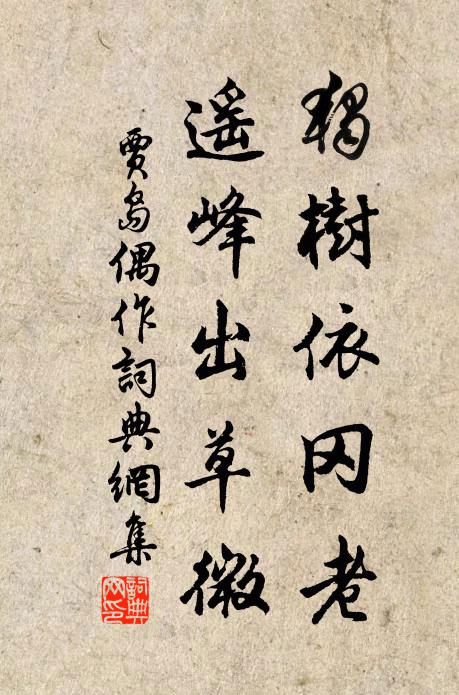 獨樹依冈老
遥峰出草微
賈島偶作詞典網集
詞典網印